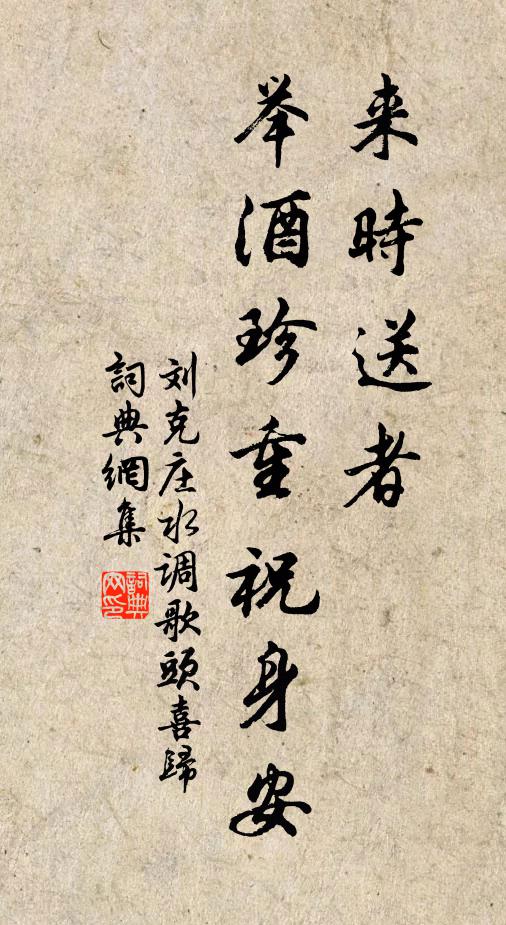 来時送者
举酒珍重祝身安
刘克庄水调歌頭喜歸
詞典網集
詞典
网印